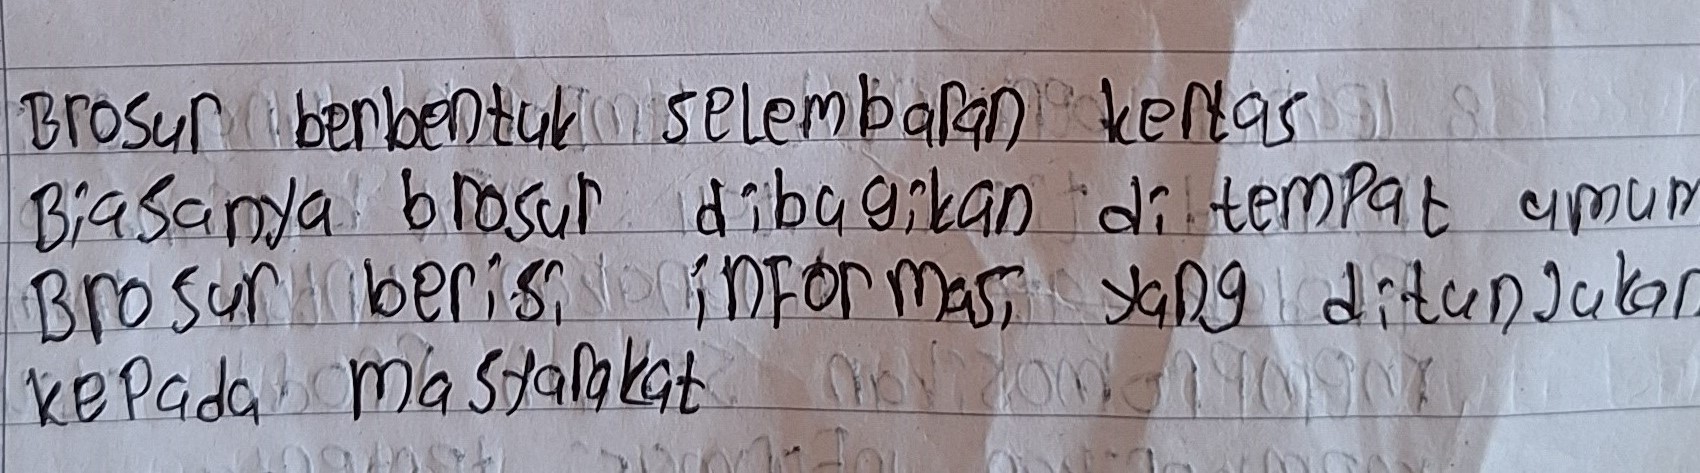 Brosur berbentuk selembaran kertas
Biasanya brosur dibagikan di tempat umum
Brosur berisi informasi yang ditunjukan
kepada masyarakat